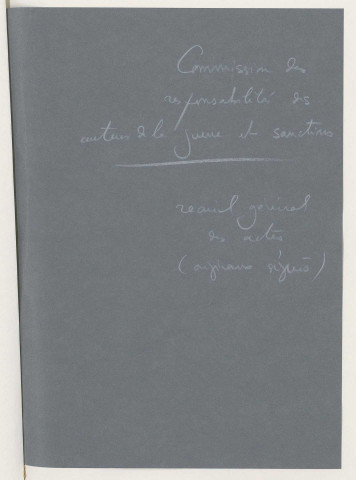 Commission des
responsabilité des
auteurs de la guerre et sanctions
recueil général
des actes
(originaux signés)